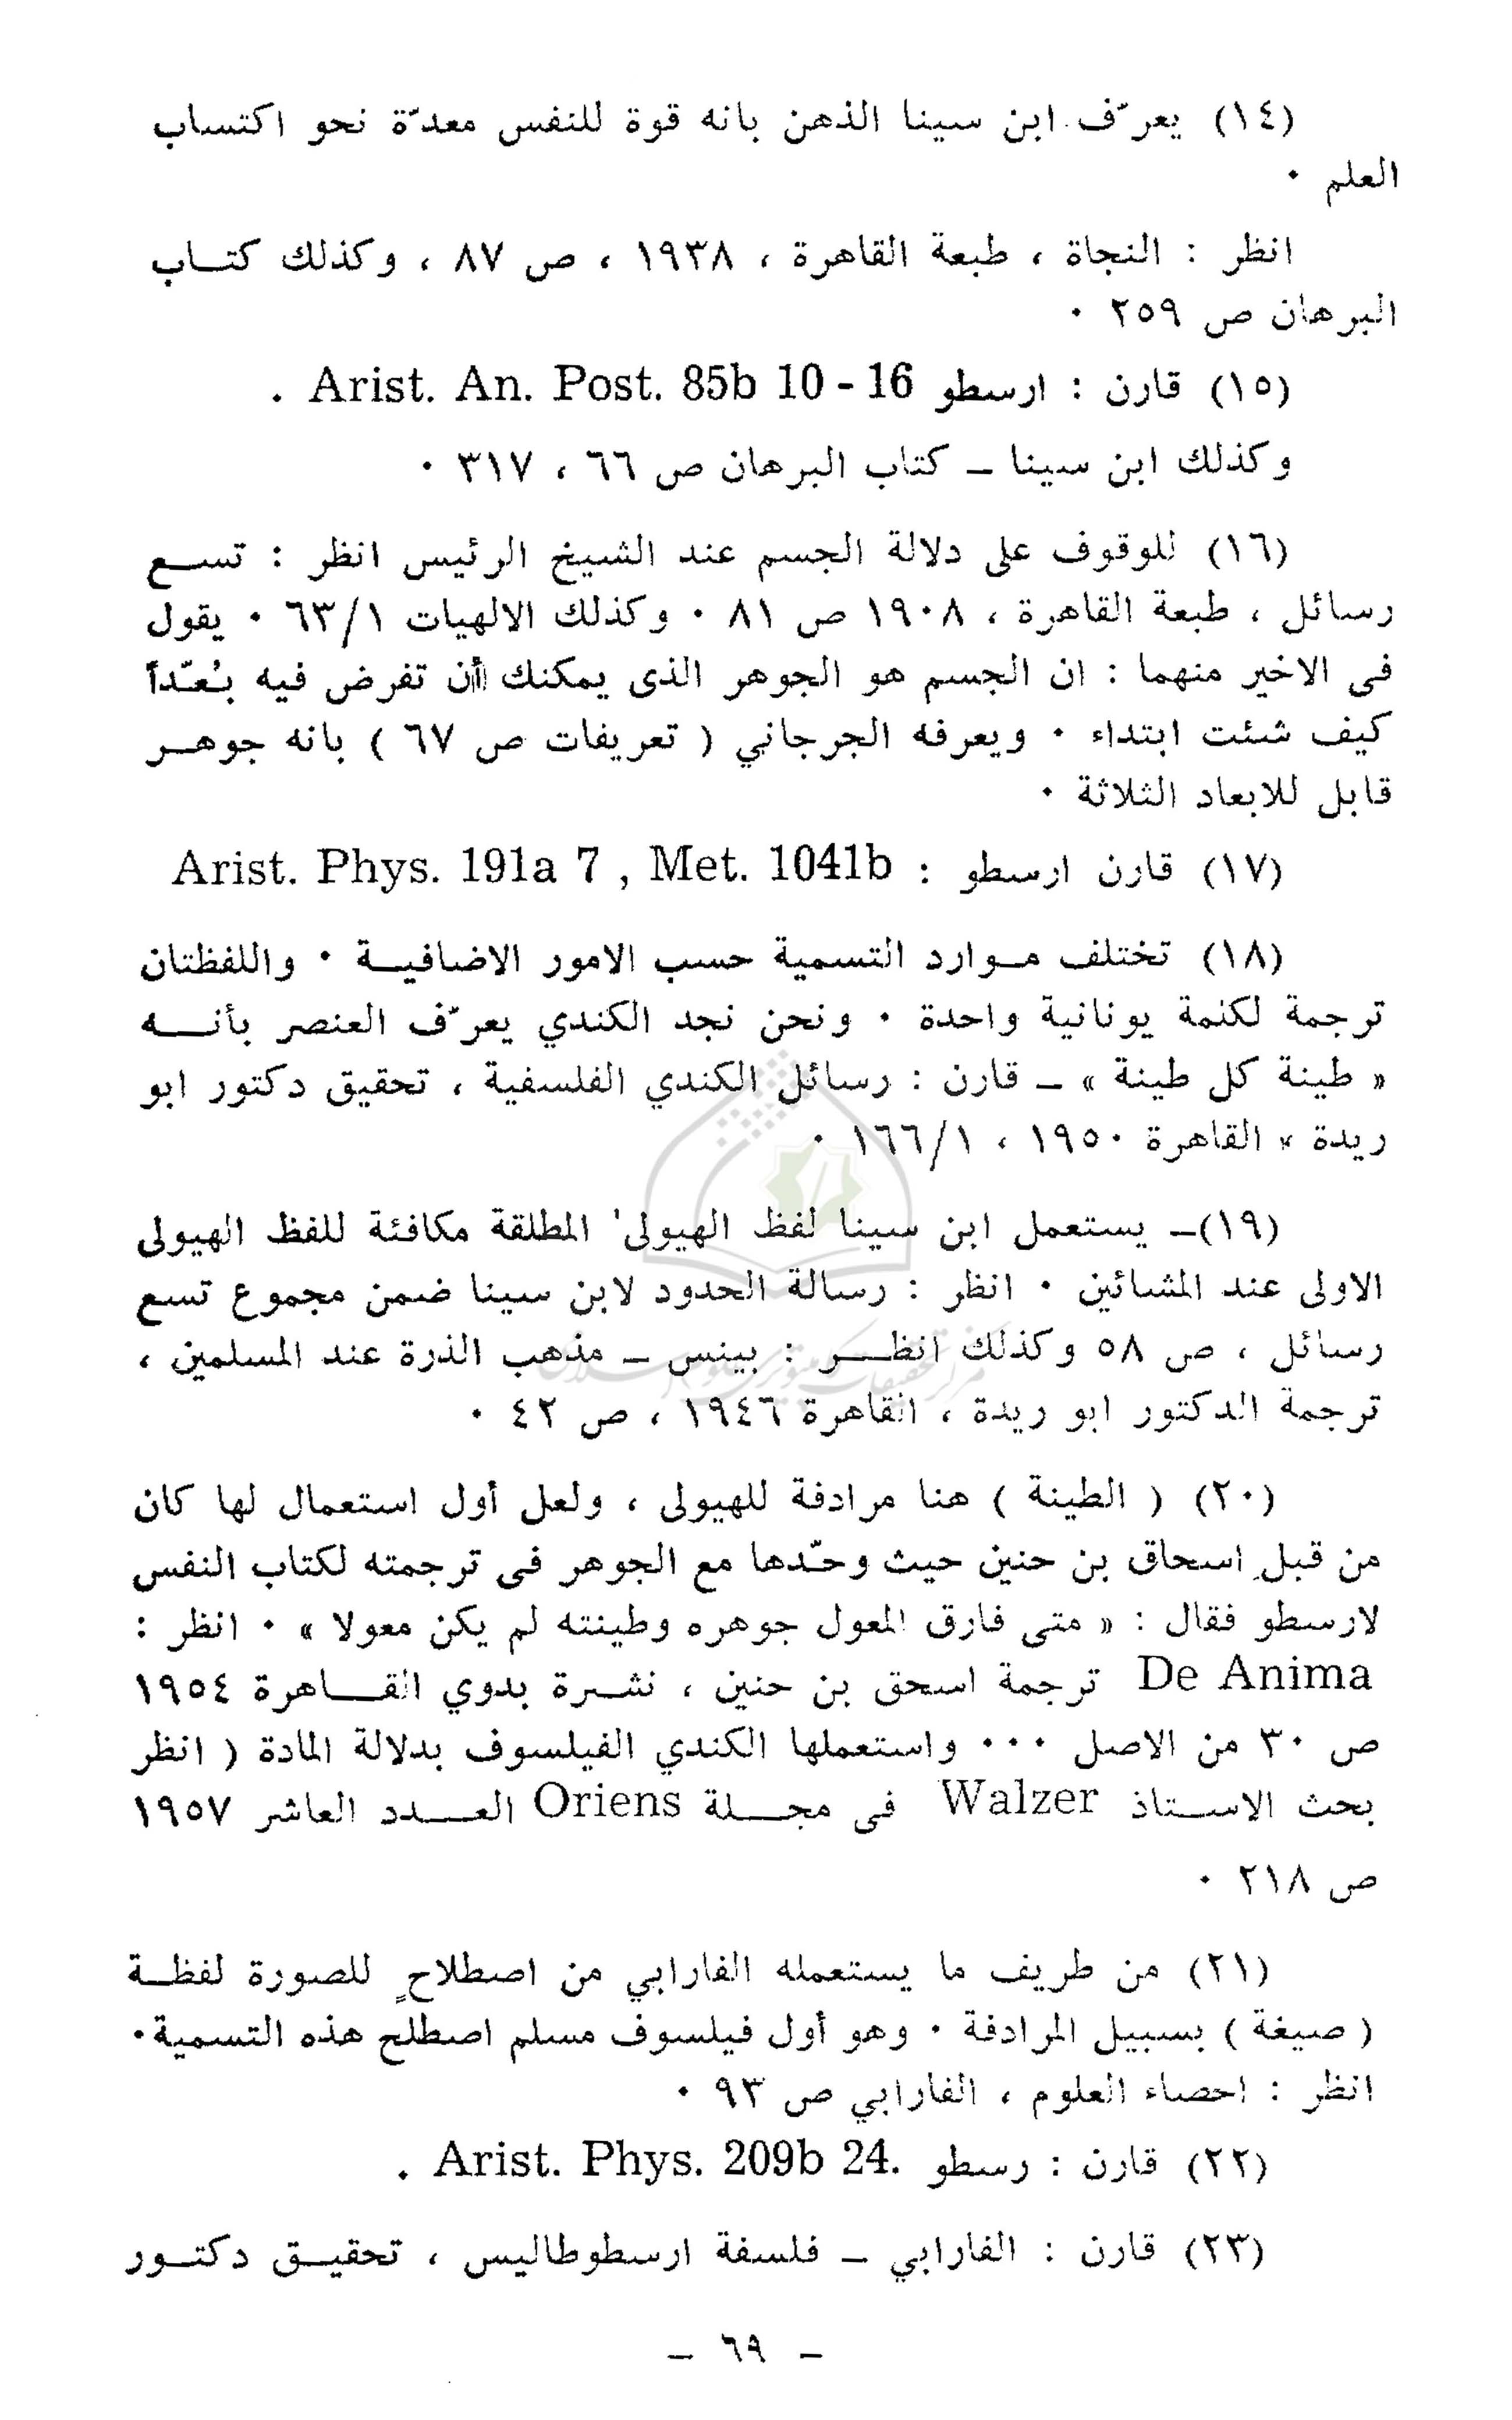 (١٤) يعرّف ابن سينا الذهن بانه قوة للنفس معدّة نحو اكتساب
العلم ٠
انظر : النجاة ، طبعة القاهرة ، ١٩٣٨ ، ص ٨٧ ، وكذلك كتـاب
البرهان ص ٢٥٩ ٠
(١٥) قارن : ارسطو Arist. An. Post. 85b 10 - 16 .
وكذلك ابن سينا ــ كتاب البرهان ص ٦٦ ، ٣١٧ ٠
(١٦) للوقوف على دلالة الجسم عند الشيخ الرئيس انظر : تســع
رسائل ، طبعة القاهرة ، ١٩٠٨ ص ٨١ ٠ وكذلك الالهيات ٦٣/١ ٠ يقول
فى الاخير منهما : ان الجسم هو الجوهر الذى يمكنك أن تفرض فيه بُعّداً
كيف شئت ابتداء ٠ ويعرفه الجرجاني ( تعريفات ص ٦٧ ) بانه جوهـر
قابل للابعاد الثلاثة ٠
(١٧) قارن ارسطو : Arist. Phys. 191a 7 , Met. 1041b
(١٨) تختلف مـوارد التسمية حسب الامور الاضافيـة ٠ واللفظتان
ترجمة لكلمة يونانية واحدة ٠ ونحن نجد الكندي يعرّف العنصر بأنــه
« طينة كل طينة » ــ قارن : رسائل الكندي الفلسفية ، تحقيق دكتور ابو
ريدة ، القاهرة ١٩٥٠ ، ١٦٦/١ ٠
(١٩)ــ يستعمل ابن سينا لفظ الهيولى' المطلقة مكافئة للفظ الهيولى
الاولى عند المشائين ٠ انظر : رسالة الحدود لابن سينا ضمن مجموع تسع
رسائل ، ص ٥٨ وكذلك انظــر : بينس ــ مذهب الذرة عند المسلمين ،
ترجمة الدكتور ابو ريدة ، القاهرة ١٩٤٦ ، ص ٤٢ ٠
(٢٠) ( الطينة ) هنا مرادفة للهيولى ، ولعل أول استعمال لها كان
من قبل اسحاق بن حنين حيث وحّدها مع الجوهر فى ترجمته لكتاب النفس
لارسطو فقال : « متى فارق المعول جوهره وطينته لم يكن معولا » ٠ انظر :
De Anima ترجمة اسحق بن حنين ، نشـرة بدوي القــاهرة ١٩٥٤
ص ٣٠ من الاصل ٠٠٠ واستعملها الكندي الفيلسوف بدلالة المادة ( انظر
بحث الاسـتاذ Walzer فى مجــلة Oriens العــدد العاشر ١٩٥٧
ص ٢١٨ ٠
(٢١) من طريف ما يستعمله الفارابي من اصطلاحٍ للصورة لفظـة
( صيغة ) بسبيل المرادفة ٠ وهو أول فيلسوف مسلم اصطلح هذه التسمية٠
انظر : احصاء العلوم ، الفارابي ص ٩٣ ٠
(٢٢) قارن : رسطو Arist. Phys. 209b 24. .
(٢٣) قارن : الفارابي ــ فلسفة ارسطوطاليس ، تحقيـق دكتـور
ــ ٦٩ ــ